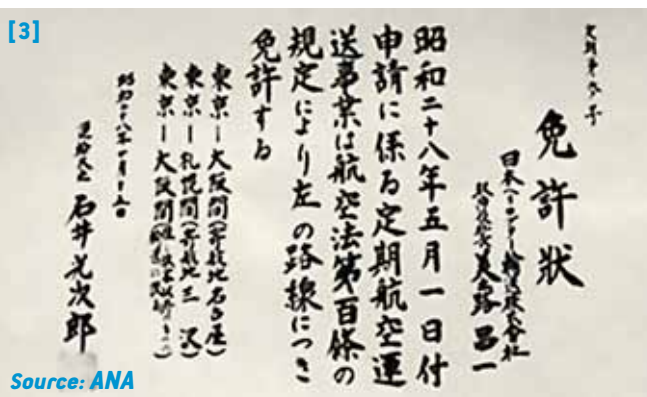 [3]
免許狀
日本ヘリコプター輸送株式会社
取締役社長 美土路昌一
昭和二十八年五月一日付
申請に係る定期航空運
送事業は航空法第百條の
規定により左の路線につき
免許する
東京ー大阪間(寄航地名古屋)
東京ー札幌間(寄航地三沢)
東京ー大阪間
昭和二十八年十月十五日
運輸大臣 石井光次郎
Source: ANA